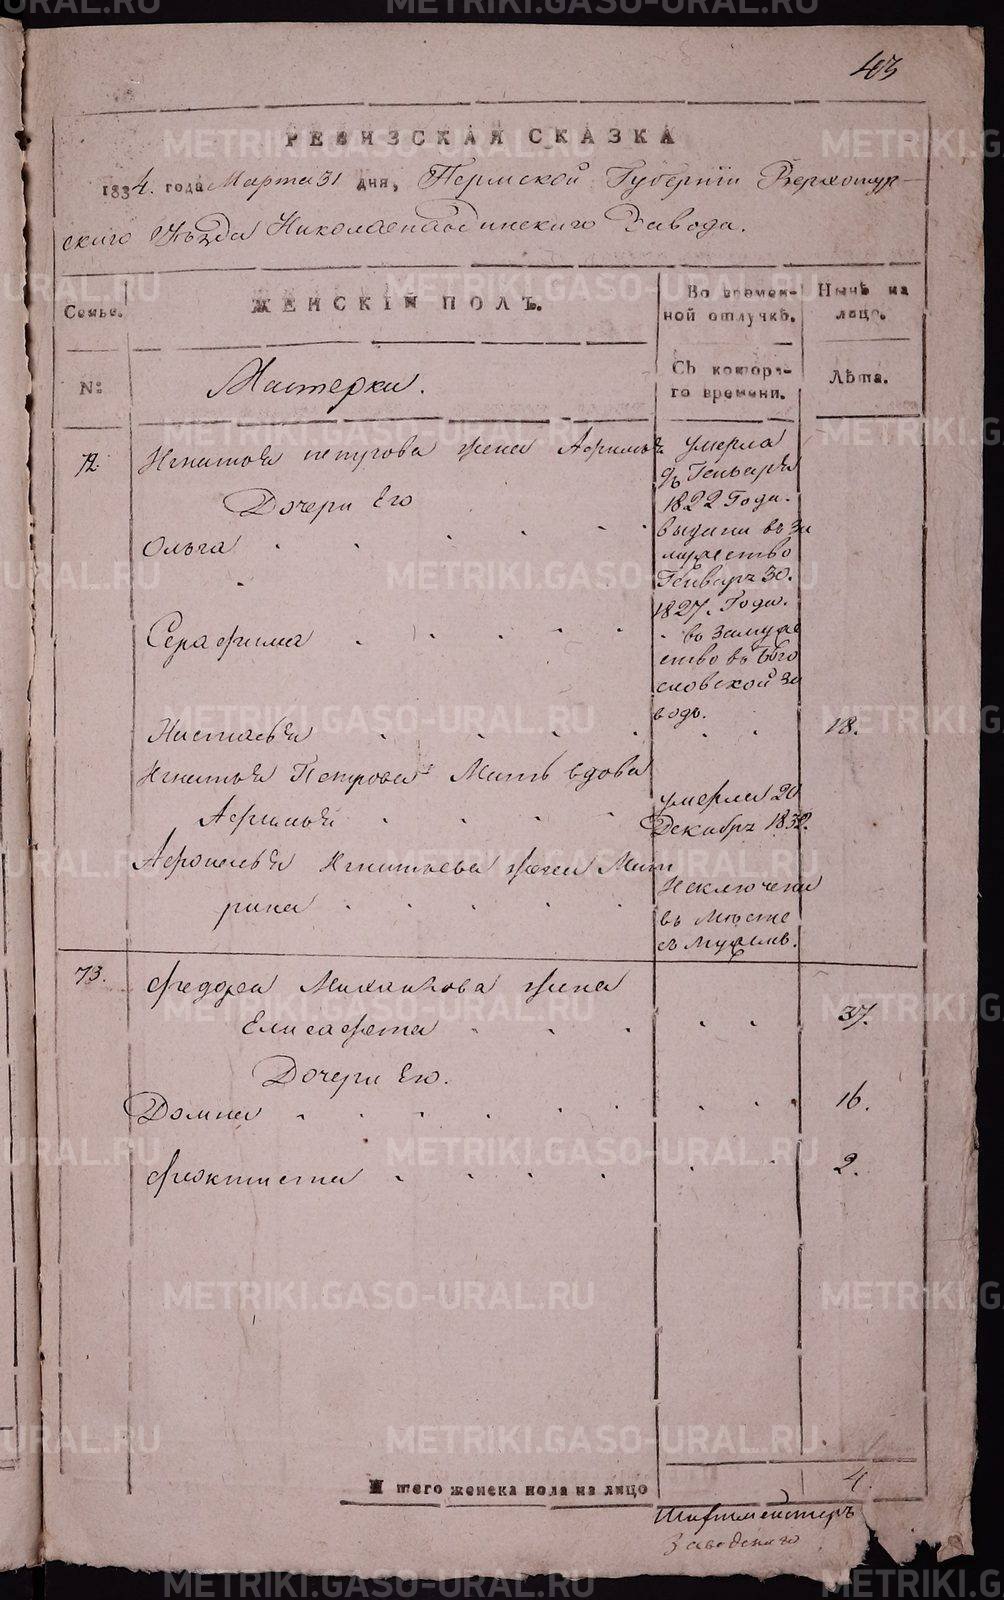 403
РЕВИЗСКАЯ СКАЗКА
1834. года Марта 31 дня, Пермской Губернїи Верхотур-
скаго Уѣзда Николаепавдинскаго Завода.
Семье. ЖЕНСКІЙ ПОЛЪ. Во времен-ной отлучкѣ. Нынѣ на лицо.
№ Мастерки. Съ котора-го времени. Лѣта.
72. Игнатья петрова жена Афимья умерла
Генваря
Дочери Его 1822 Года.
Ольга выдана въ за
мужество
Генваря 30.
1827. Года.
Серафима въ замуже
ство въ Бого
словской за
водъ.
Настасья 18.
Игнатья Петрова Мать вдова
Афимья умерла 20
Декабря 1832.
Афонасья Игнатьева жена Мат
рина Исключена
въ месте
съ мужемъ.
73. Федора Михайлова жена
Елисафета 37.
Дочери Его.
Домна 16.
Феоктиста 2.
Итого женска пола на лицо 4.
Шихтмейстеръ
Заводскаго
METRIKI.GASO-URAL.RU